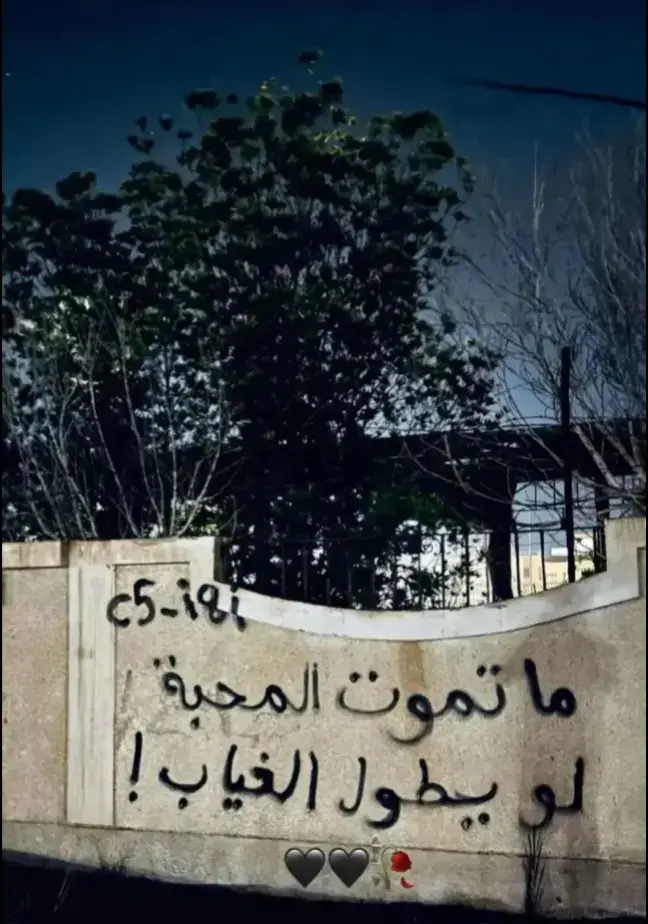 c5-i8i
ما تموت المحبة
لو يطول الغياب !
🖤🖤🥀